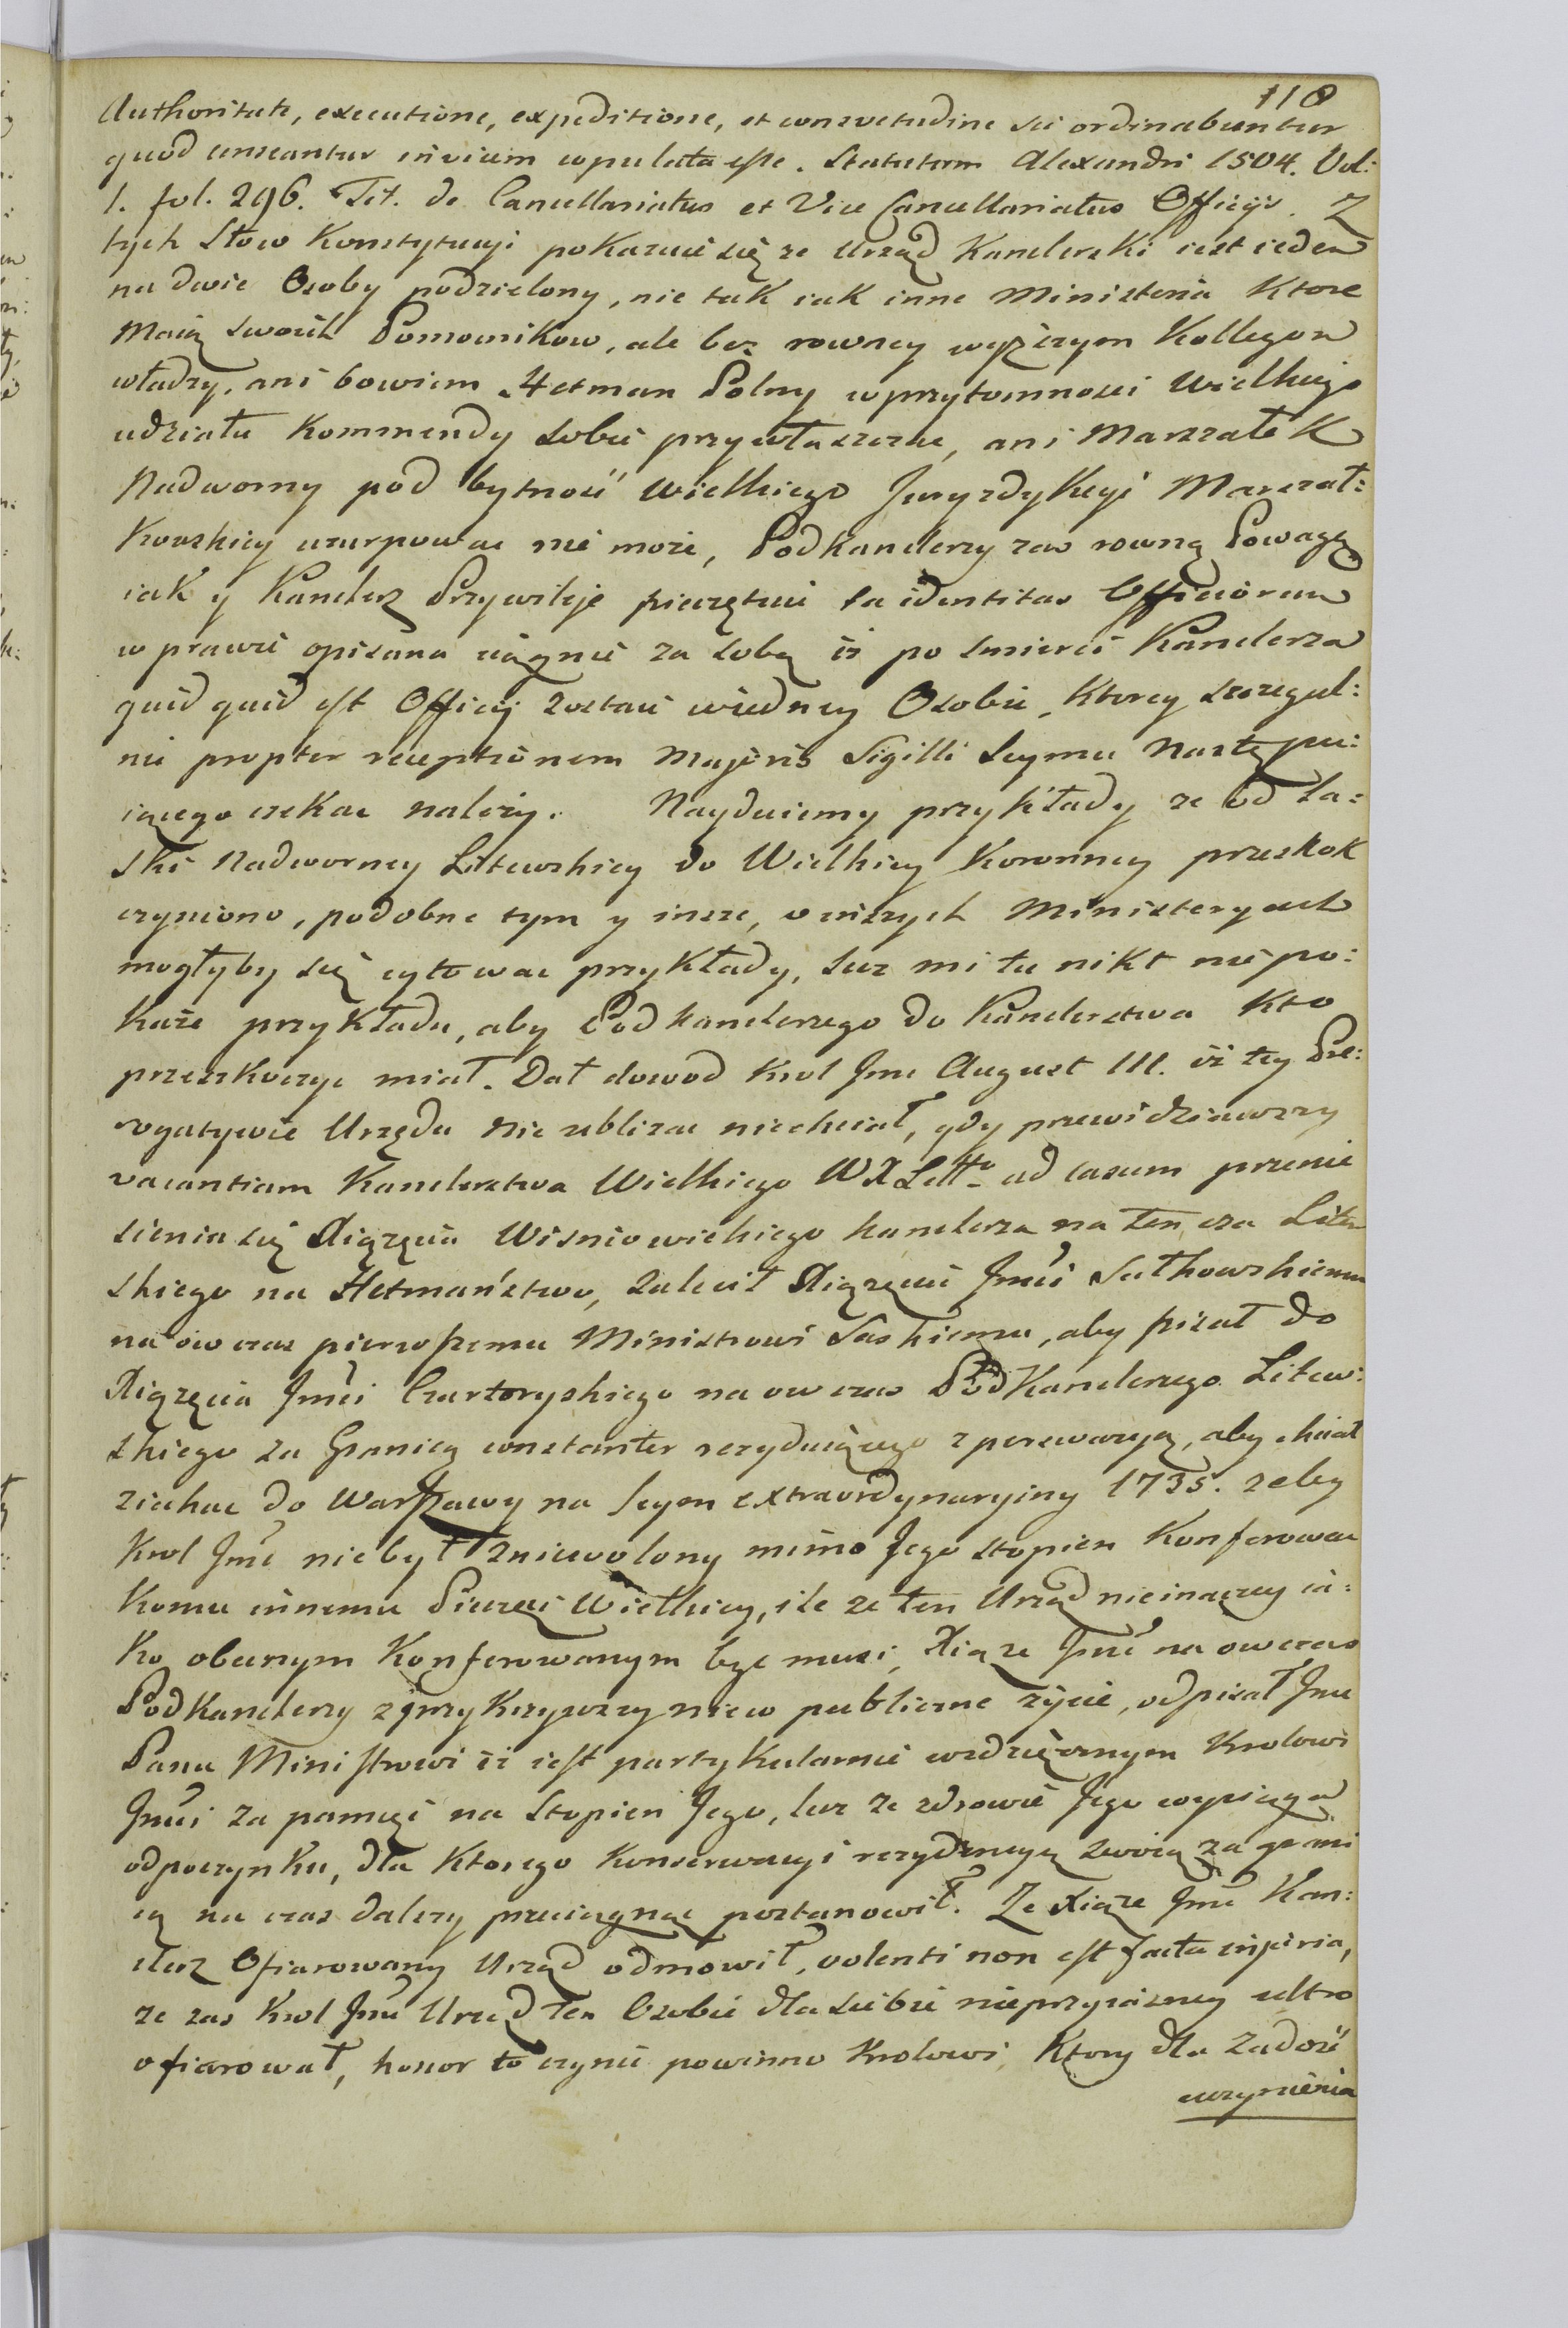 118
Authoritate, executione, expeditione, et consvetudine sic ordinabuntur
quod censeantur invicem copulata esse. Statutum Alexandri 1504. Vol:
1. fol. 296. Tit. de Cancellariatus et Vice Cancellariatus Officijs. Z
tych Słow Konstytucyi pokazuie się ze Urząd Kanclerski iest ieden
na dwie Osoby podzielony, nie tak iak inne Ministeria Ktore
Maią swoich Pomocnikow, ale bez rowney wyższym Kollegom
władzy, ani bowiem Hetman Polny w przytomnosci Wielkiego
udziału Kommendy sobie przywłaszczac, ani Marszałek
Nadworny pod bytnosć Wielkiego Juryzdykcyi Marszał:
kowskiey uzurpowac nie może, Podkanclerzy zas rowną Powagą
iak y Kanclerz Przywileje pieczętuie ta identitas Officiorum
w prawie opisana ciągnie za sobą iż po smierci Kanclerza
quid quid est Officij zostaie wiedney Osobie, Ktorey szczegul:
nie propter receptionem Majoris Sigilli Seymu Nastepu:
iącego czekac należy. Nayduiemy przykłady ze od La:
ski Nadworney Litewskiey do Wielkiey Koronney przeskok
czyniono, podobne tym y insze, w inszych Ministeryach
mogłyby się cytowac przykłady, lecz mi tu nikt nie po:
każe przykładu, aby Podkanclerzego do Kanclerstwa Kto
przeskoczyc miał. Dał dowod Krol Jmc August III. iż tey Pre:
rogatywie Urzędu nic ubliżac niechciał, gdy przewidziawszy
vacantiam Kanclerstwa Wielkiego WXLitt<sup>o</sup> ad casum przenie
sienia się Xiążęcia Wisniowieckiego kanclerza na ten cza Litew
skiego na Hetmaństwo, zalecił Xiążęciu Jmći Sułkowskiemu
na ow czas pierwszemu Ministrowi Saskiemu, aby pisał do
Xiążęcia Jmći Czartoryskiego na ow czas Podkanclerzego Litew:
skiego za Granicą constanter rezyduiącego z perswazyą, aby chciał
ziechac do Warszawy na Seym extraordynaryiny 1735. zeby
Krol Jmć niebył zniewolony mimo Jego stopien Konferowac
Komu innemu Pieczęci Wielkiey, ile ze ten Urząd nieinaczey ia:
ko obecnym Konferowanym byc musi, Xiąze Jmć na owczas
Podkanclerzy zprzykrzywszy niew publiczne życie, odpisał Jmc
Panu Ministrowi iż iest partykularnie wdzięcznym Krolowi
Jmći za pamięć na Stopien Jego, lecz ze zdrowie Jego wyciąga
odpoczynku, dla Ktorego Konserwacyi rezydencyą swoią za grani
cą na czas dalszy przeciągnąc postanowił. Ze Xiąze Jmć Kan:
clerz Ofiarowany Urząd odmowił, volenti non est facta injuria,
ze zas Krol Jmć Urząd ten Osobie dla siebie nieprzyiazney ultro
ofiarował, honor to czynic powinno Krolowi, Ktory dla zadosć
uczynienia